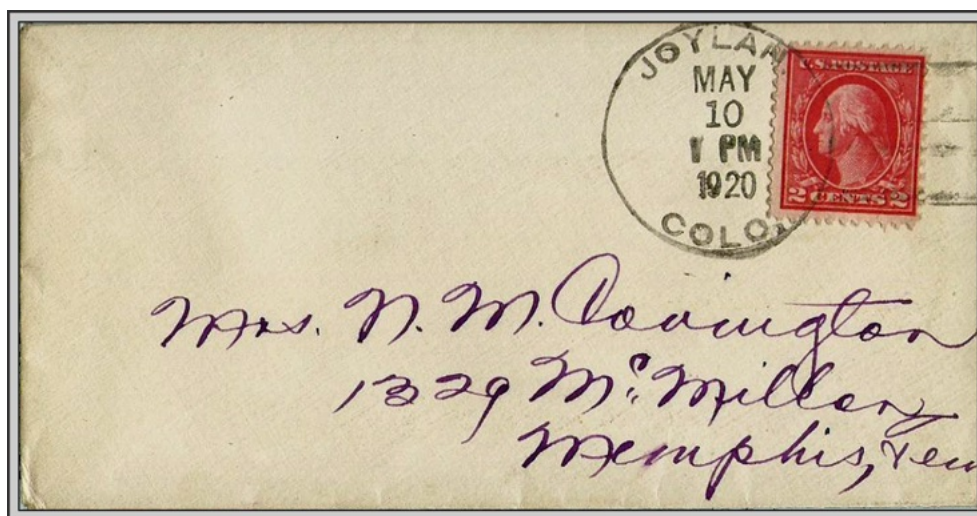 JOYLAN
MAY
10
1 PM
1920
COLO.
U.S. POSTAGE
2 CENTS 2
Mrs. N. M. Covington
1329 Mc. Millan
Memphis, Ten